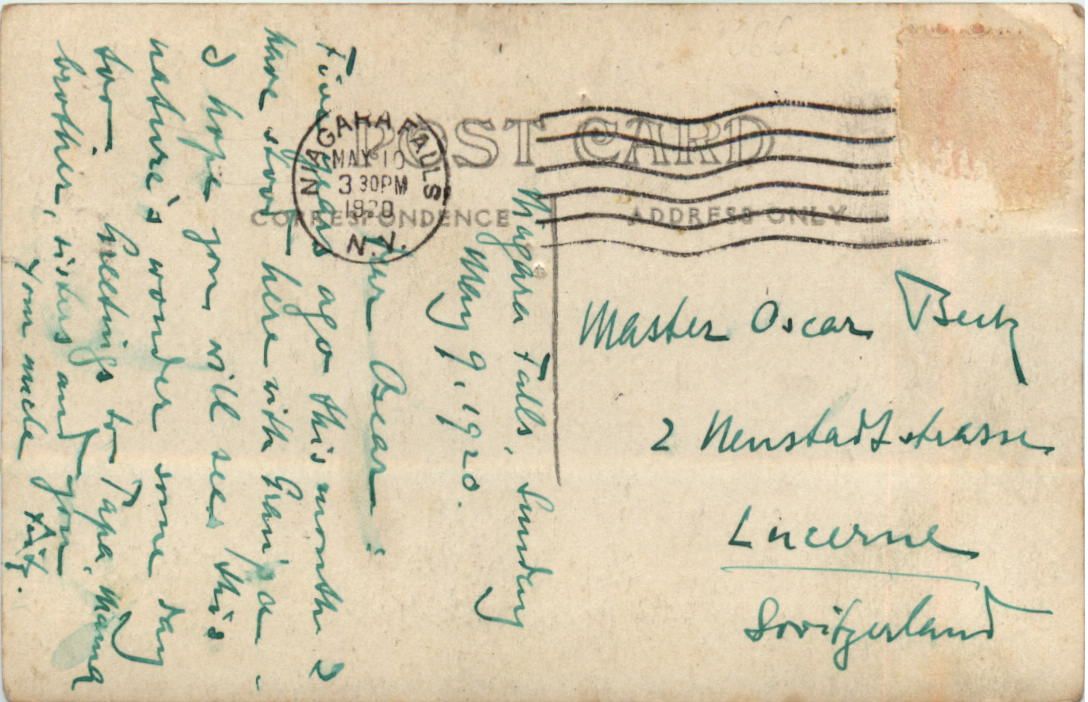 POST CARD
CORRESPONDENCE
ADDRESS ONLY
NIAGARA FALLS
MAY 10
3 30PM
1920
N.Y.
Niagara Falls, Sunday
May 9. 1920.
Dear Oscar:
Five years ago this month I
have stood here with Grandpa.
I hope you will see this
nature's wonder some day
too— Greetings to Papa, Mama
brother, sisters and you
your uncle
Master Oscar
2 Neustadtstrasse
Lucerne
Switzerland